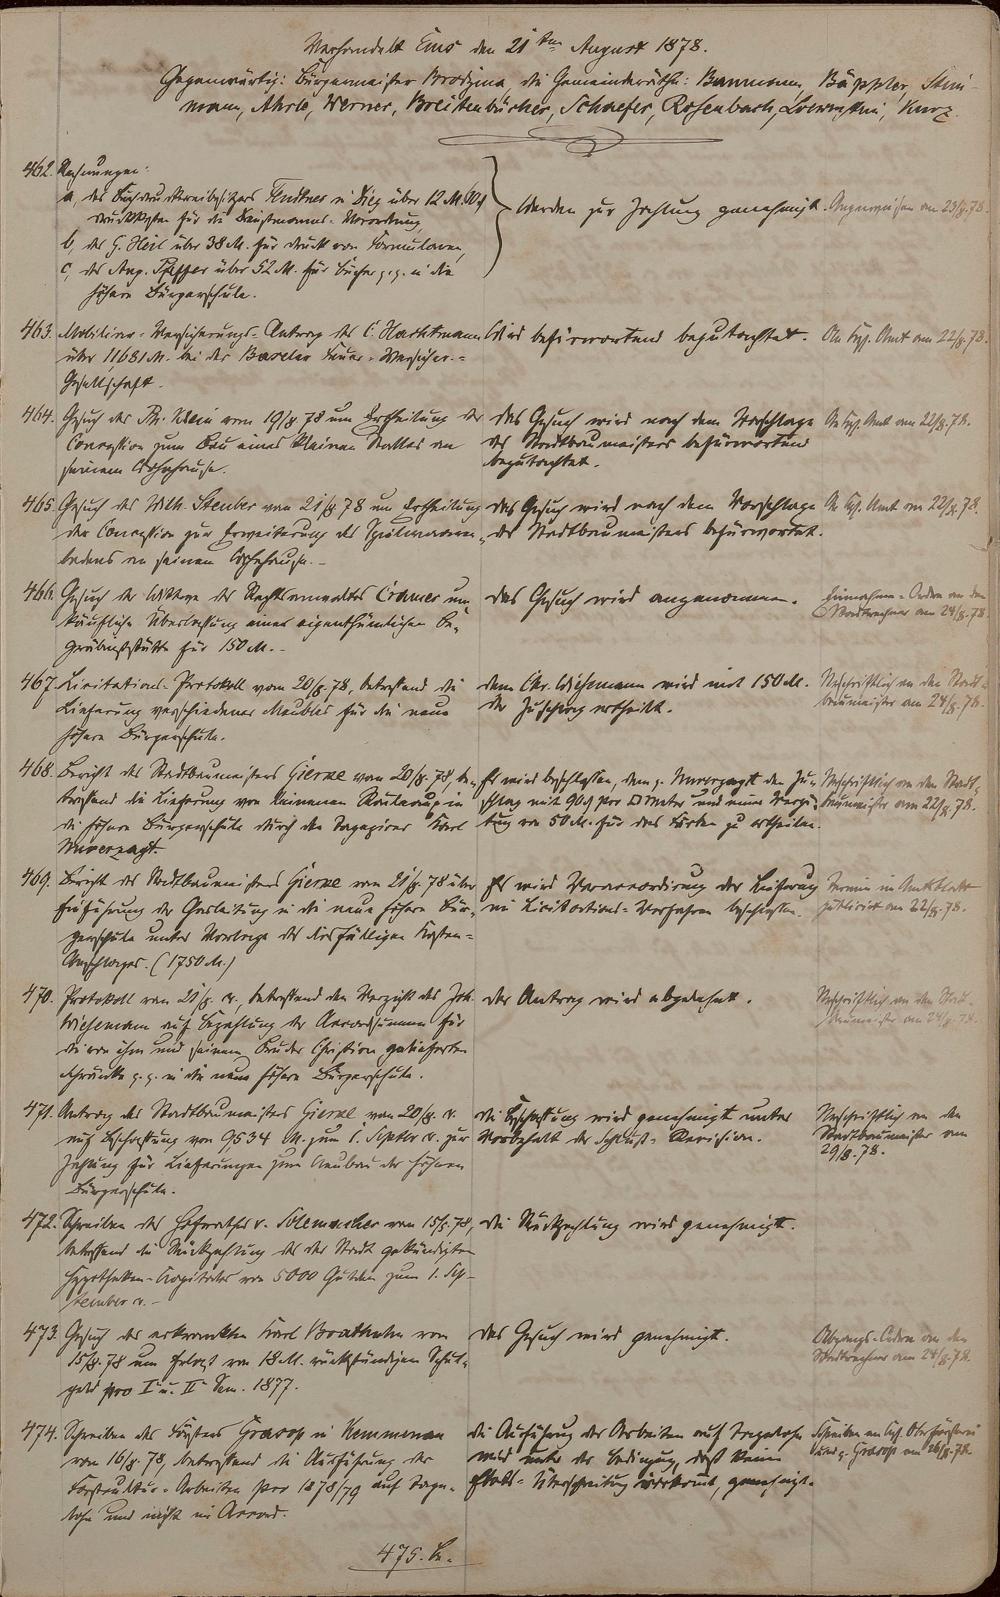 Verhandelt Ems den 21ten August 1878.
Gegenwärtig: Bürgermeister die Gemeinderäthe: Baumann, Bäppler, Stein-
mann, Ahrle, Werner, Breitenbücher, Schaefer, Rosenbach, Loewenstein, Kurz.
462. Rechnungen:
a, des Buchdruckereibesitzers in Diez über 12 M. 60 ₰
Druckkosten für die Dienstmanns-Verordnung,
b, des G. Heil über 38 M. für Druck von Formularen,
c, des Aug. Pfeffer über 52 M. für Bücher p. p. in die
höhere Bürgerschule.
Werden zur Zahlung genehmigt.
Angewiesen am 23/8. 78.
463. Mobiliar-Versicherungs-Antrag des C. Hachtmann
über 11681 M. bei der Baseler Feuer-Versicher.-
Gesellschaft.
Wird befürwortend begutachtet.
An Kgl. Amt am 22/8. 78.
464. Gesuch des Ph. Klein vom 19/8 78 um Ertheilung der
Concession zum Bau eines kleinen Stalles an
seinem Wohnhause.
Das Gesuch wird nach dem Vorschlage
des Stadtbaumeisters befürwortend
begutachtet.
An Kgl. Amt am 22/8. 78.
465. Gesuch des Wilh. Stenber vom 21/8 78 um Ertheilung
der Concession zur Erweiterung des
ladens an seinem Wohnhause.
Das Gesuch wird nach dem Vorschlage
des Stadtbaumeisters befürwortet.
An Kgl. Amt am 22/8. 78.
466. Gesuch der Wittwe des Rechtsanwaltes Cramer um
käufliche Überlassung einer eigenthümlichen Be-
gräbnißstätte für 150 M.
Das Gesuch wird angenommen.
Einnahme-Ordre an den
Stadtrechner am 24/8. 78.
467. Licitations-Protokoll vom 20/8. 78, betreffend die
Lieferung verschiedener Meubles für die neue
höhere Bürgerschule.
Dem Chr. Wiesemann wird mit 150 M.
der Zuschlag ertheilt.
Abschriftlich an den Stadt-
baumeister am 24/8. 78.
468. Bericht des Stadtbaumeisters Gierne vom 20/8. 78, be-
treffend die Lieferung von leinenen Rouleaux in
die höhere Bürgerschule durch den Tapezirer Karl
Unverzagt.
Es wird beschlossen, dem p. Unverzagt den Zu-
schlag mit 90 ₰ pro □ Meter und eine Vergü-
tung von 50 M. für das Färben zu ertheilen.
Abschriftlich an den Stadt-
baumeister am 22/8. 78.
469. Bericht des Stadtbaumeisters Gierne vom 21/8. 78 über
Einführung der Gasleitung in die neue höhere Bür-
gerschule unter Vorlage des diesfälligen Kosten-
Anschlages. (1750 M.)
Es wird Veraccordirung der Lieferung
im Licitations-Verfahren beschlossen.
Termin im Amtsblatt
publicirt am 22/8. 78.
470. Protokoll vom 21/8. cr., betreffend den Verzicht des Joh.
Wiesemann auf Bezahlung der Accordsumme für
die von ihm und seinem Bruder Christian gelieferten
Schränke p. p. in die neue höhere Bürgerschule.
Der Antrag wird abgelehnt.
Abschriftlich an den Stadt-
baumeister am 24/8. 78.
471. Antrag des Stadtbaumeisters Gierne vom 20/8. cr.
auf Beschaffung von 9534 M. zum 1. Septbr cr. zur
Zahlung für Lieferungen zum Neubau der höheren
Bürgerschule.
Die Beschaffung wird genehmigt unter
Vorbehalt der Schluß-Revision.
Abschriftlich an den
Stadtbaumeister am
29/8. 78.
472. Schreiben des Hofrathes v. vom 15/8. 78,
betreffend die Rückzahlung des der Stadt gekündigten
Hypotheken-Kapitales von 5000 Gulden zum 1. Sep-
tember cr.
Die Rückzahlung wird genehmigt.
473. Gesuch des erkrankten Karl vom
15/8. 78 um Erlaß von 18 M. rückständigem Schul-
geld pro I. u. II. Sem. 1877.
Das Gesuch wird genehmigt.
Abgangs-Ordre an den
Stadtrechner am 24/8. 78.
474. Schreiben des Försters in Kemmenau
vom 16/8. 78, betreffend die Ausführung der
Forstkultur-Arbeiten pro 1878/79 auf Tage-
lohn und nicht in Accord.
Die Ausführung der Arbeiten auf Tagelohn
wird unter der Bedingung, daß keine
Etats-Überschreitung vorkommt, genehmigt.
Schreiben an Kgl. Oberförsterei
am 26/8. 78.
475. Be-